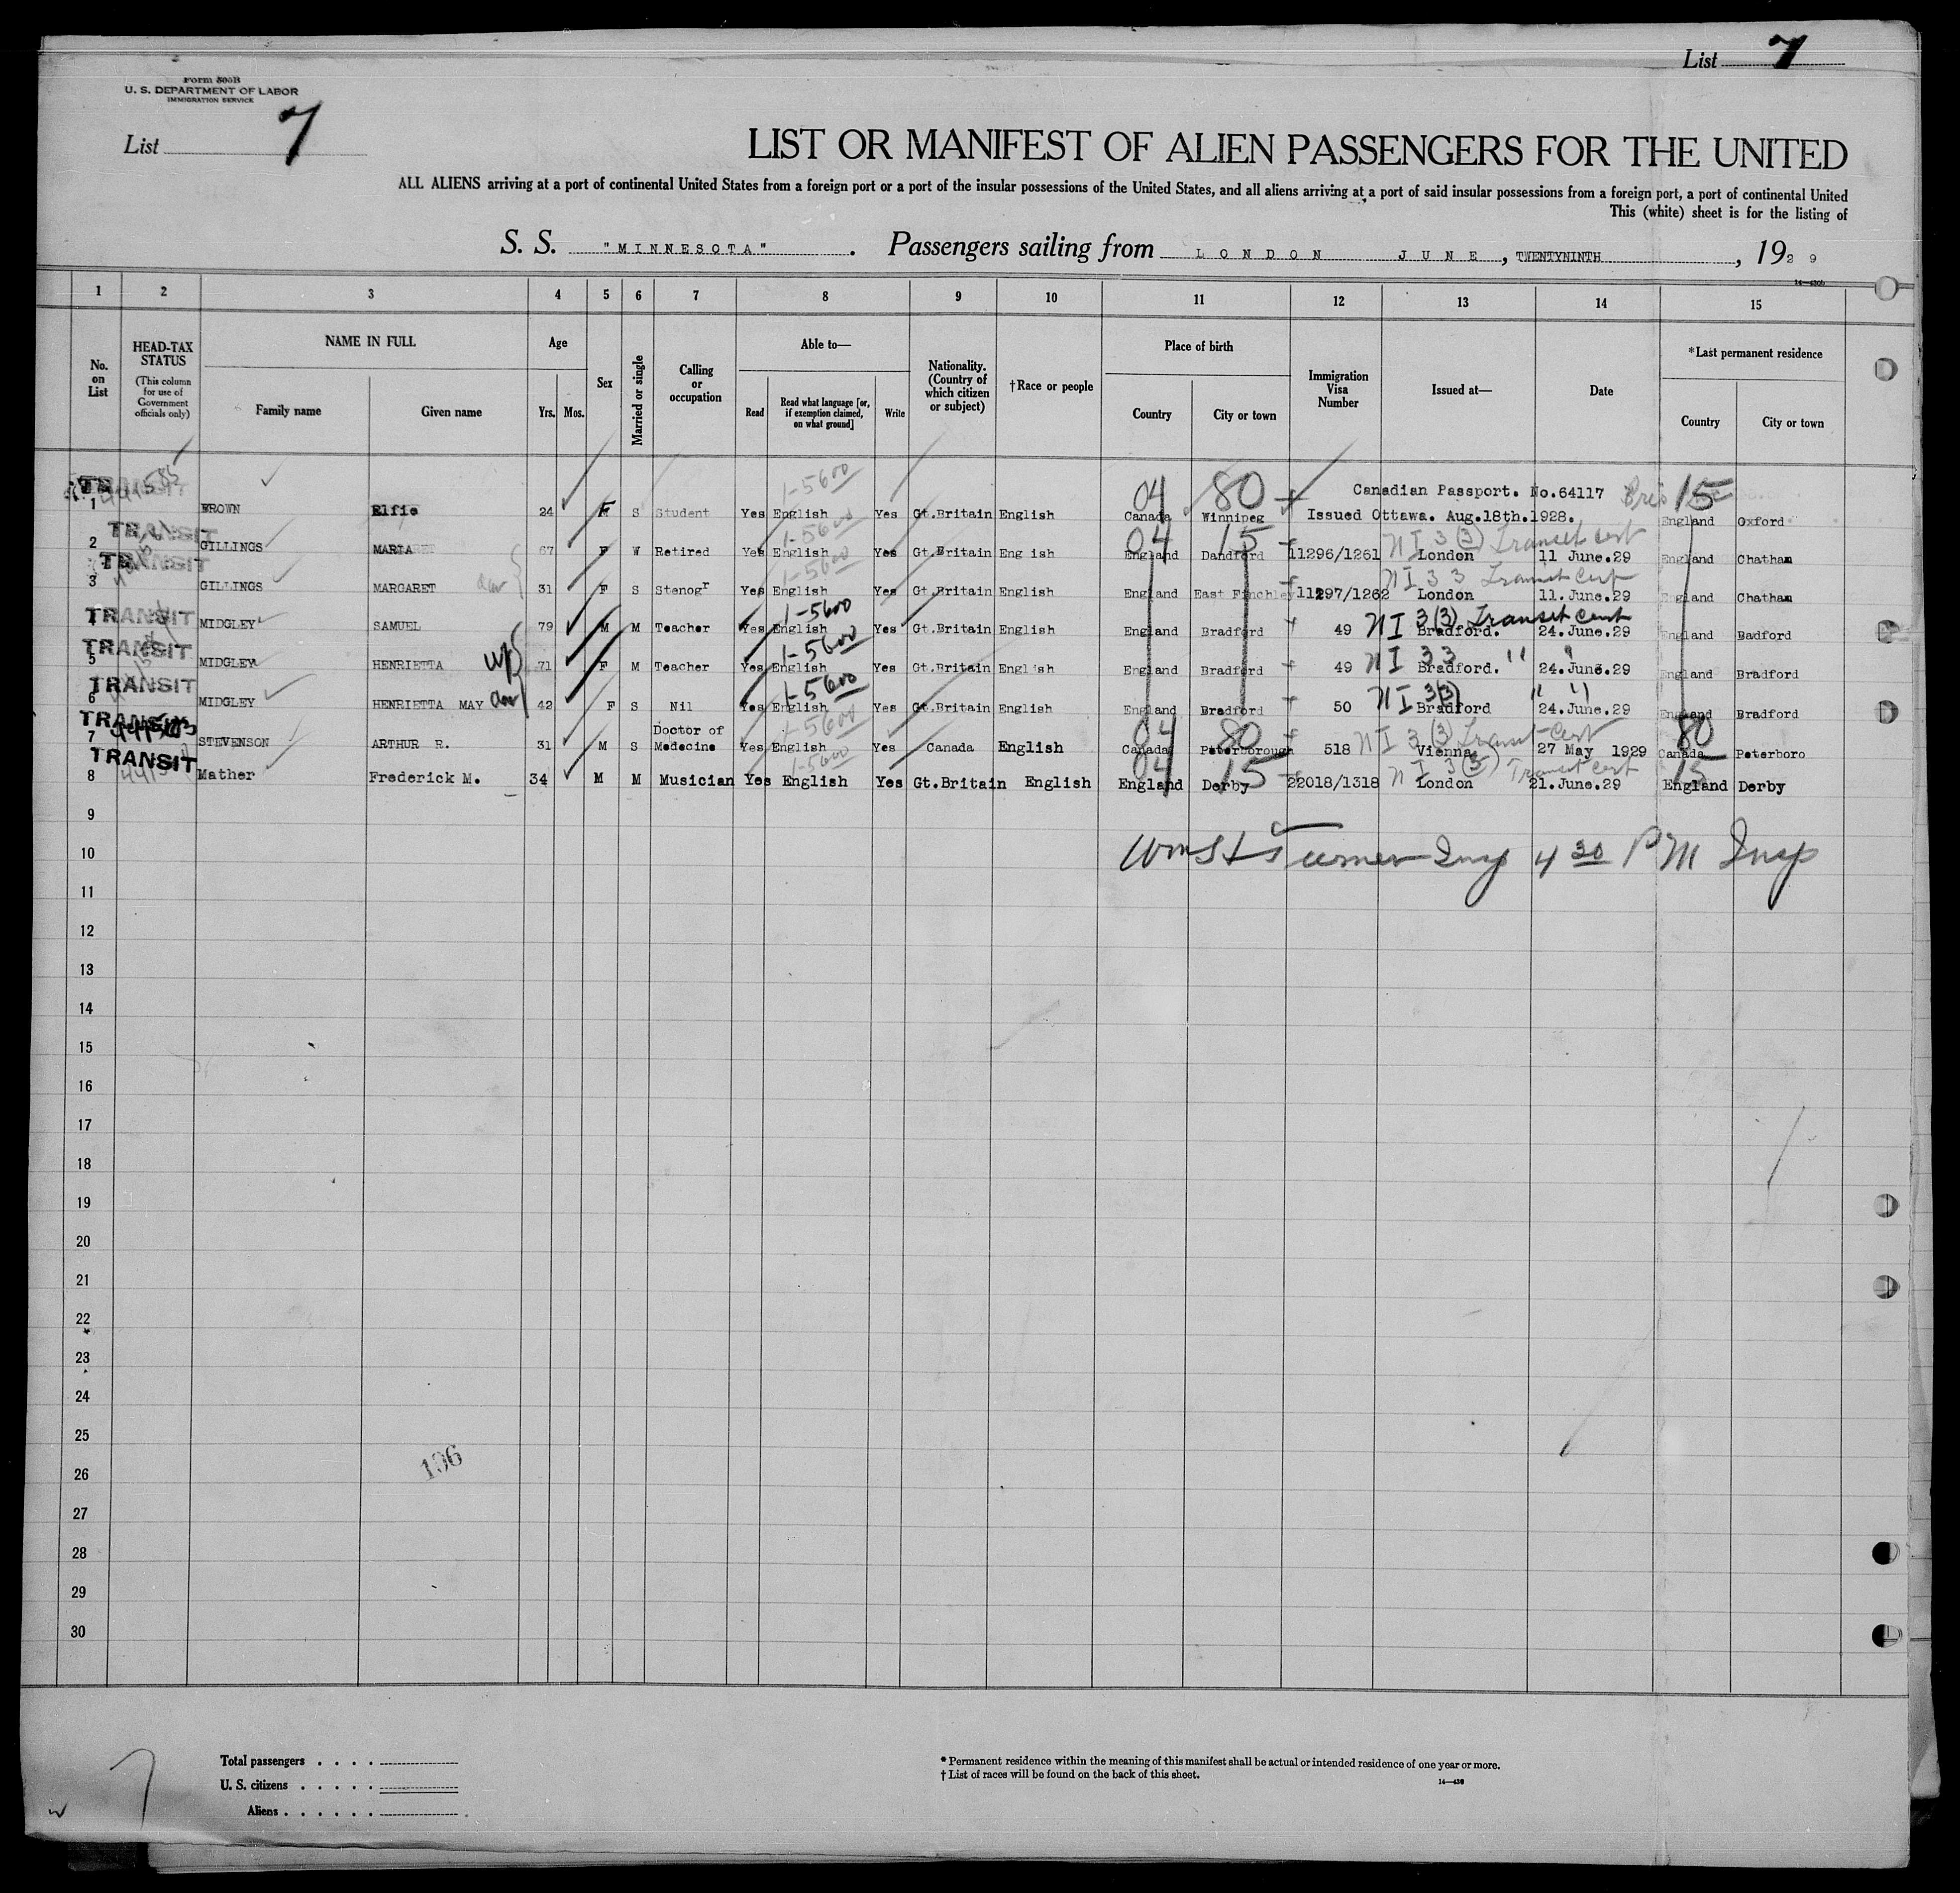 List 7
Form 500B
U. S. DEPARTMENT OF LABOR
IMMIGRATION SERVICE
List 7
LIST OR MANIFEST OF ALIEN PASSENGERS FOR THE UNITED
ALL ALIENS arriving at a port of continental United States from a foreign port or a port of the insular possessions of the United States, and all aliens arriving at a port of said insular possessions from a foreign port, a port of continental United
This (white) sheet is for the listing of
S. S. "MINNESOTA". Passengers sailing from LONDON JUNE, TWENTYNINTH, 1929
1 2 3 4 5 6 7 8 9 10 11 12 13 14 15
No. on List
HEAD-TAX STATUS (This column for use of Government officials only)
NAME IN FULL Family name Given name
Age Yrs. Mos.
Sex
Married or single
Calling or occupation
Able to— Read Read what language [or, if exemption claimed, on what ground] Write
Nationality. (Country of which citizen or subject)
†Race or people
Place of birth Country City or town
Immigration Visa Number
Issued at—
Date
*Last permanent residence Country City or town
1-5600 04 80 Canadian Passport. No.64117 15
1 BROWN Elfie 24 F S Student Yes English Yes Gt.Britain English Canada Winnipeg Issued Ottawa. Aug.18th.1928. England Oxford
TRANSIT 1-5600 04 15 NI 3(3) Transit Cert
2 GILLINGS MARIA 67 F W Retired Yes English Yes Gt.Britain Eng ish England Dandford 11296/1261 London 11 June.29 England Chatham
TRANSIT 1-5600 NI 3 3 Transit Cert
3 GILLINGS MARGARET dau 31 F S Stenogr Yes English Yes Gt.Britain English England East Finchley 11297/1262 London 11.June.29 England Chatham
TRANSIT 1-5600 NI 3(3) Transit Cert
4 MIDGLEY SAMUEL 79 M M Teacher Yes English Yes Gt.Britain English England Bradford 49 Bradford. 24.June.29 England Badford
TRANSIT 1-5600 NI 3 3 " "
5 MIDGLEY HENRIETTA wf 71 F M Teacher Yes English Yes Gt.Britain English England Bradford 49 Bradford. 24.June.29 England Bradford
TRANSIT 1-5600 NI 3(3) " "
6 MIDGLEY HENRIETTA MAY dau 42 F S Nil Yes English Yes Gt.Britain English England Bradford 50 Bradford 24.June.29 England Bradford
TRANSIT 1-5600 04 80 NI 3(3) Transit Cert 80
7 STEVENSON ARTHUR R. 31 M S Doctor of Medecine Yes English Yes Canada English Canada Peterborough 518 Vienna 27 May 1929 Canada Peterboro
TRANSIT 1-5600 04 15 NI 3(3) Transit Cert 15
8 Mather Frederick M. 34 M M Musician Yes English Yes Gt.Britain English England Derby 22018/1318 London 21.June.29 England Derby
9
10 Turner Insp 4 30 PM Insp
11
12
13
14
15
16
17
18
19
20
21
22
23
24
25
26 196
27
28
29
30
Total passengers
U. S. citizens
Aliens
* Permanent residence within the meaning of this manifest shall be actual or intended residence of one year or more.
† List of races will be found on the back of this sheet.
14—430